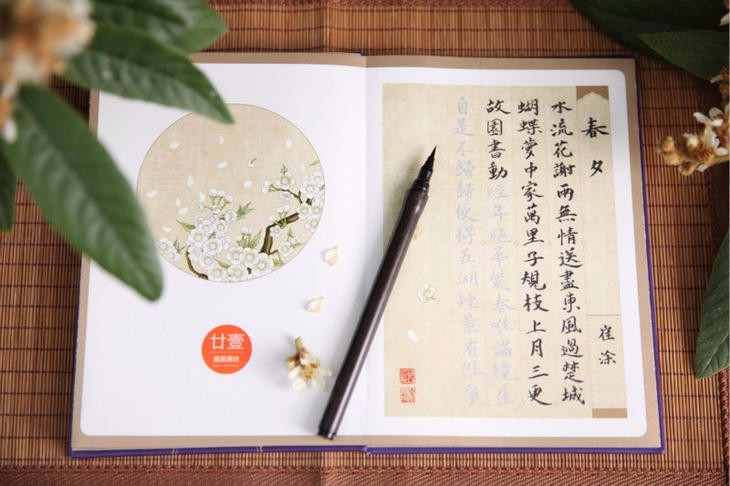 春夕
崔涂
水流花謝兩無情送盡東風過楚城
蝴蝶夢中家萬里子規枝上月三更
故園書動經年絕華髮春唯滿鏡生
自是不歸歸便得五湖煙景有誰爭
廿壹